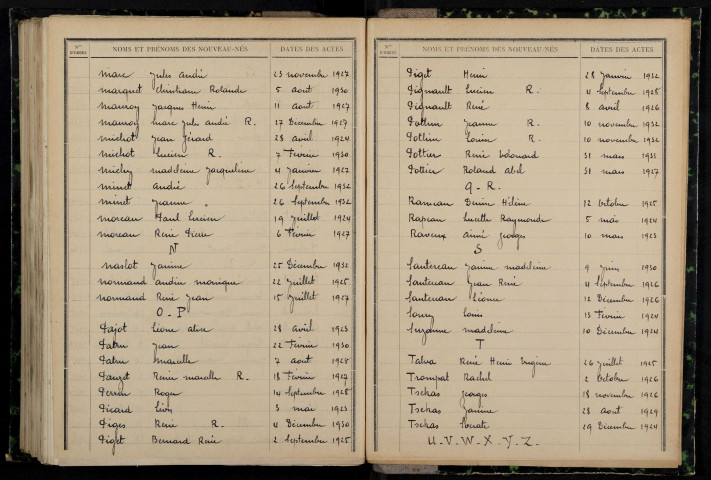 Nos D'ORDRE NOMS ET PRÉNOMS DES NOUVEAU-NÉS DATES DES ACTES
Marc Jules André 23 novembre 1927
Marquet Christiane Rolande 5 août 1930
Mauroy Jacques Henri 11 août 1927
Mauroy Marc Jules André R. 27 Décembre 1927
Michot Jean Gérard 28 avril 1924
Michot Lucien R. 7 Février 1930
Michy Madeleine Jacqueline 4 Janvier 1927
Minet André 26 Septembre 1932
Minet Jeanne " 26 Septembre 1932
Moreau Paul Lucien 19 Juillet 1924
Moreau René Pierre 6 Février 1927
N
Naslot Janine 25 Décembre 1932
Normand Andrée Monique 22 Juillet 1925
Normand René Jean 15 Juillet 1927
O - P
Pajot Léone Aline 28 avril 1923
Patru Jean 22 Février 1930
Patru Marcelle 7 août 1928
Pauzet Renée Marcelle R. 18 Février 1927
Perrin Roger 14 Septembre 1928
Picard Léon 3 mai 1923
Piges René R. 4 Décembre 1930
Piget Bernard René 2 Septembre 1925
Nos D'ORDRE NOMS ET PRÉNOMS DES NOUVEAU-NÉS DATES DES ACTES
Piget Henri 28 Janvier 1932
Pignault Lucien R. 4 Septembre 1928
Pignault René 8 avril 1926
Pothin Jeanne R. 10 novembre 1932
Pothin Louise R. 10 novembre 1932
Pottier René Edouard 31 mars 1931
Pottier Roland Abel 31 mars 1927
Q - R.
Rameau Denise Hélène 12 Octobre 1925
Rapeau Lucette Raymonde 5 mai 1924
Raveux Aimé Georges 10 mars 1923
S
Sautereau Janine Madeleine 9 Juin 1930
Sautereau Jean René 4 Septembre 1926
Sautereau Léone 12 Décembre 1926
Louis 13 Février 1924
Suzanne Madeleine 10 Décembre 1924
T
Talva René Henri Eugène 26 Juillet 1925
Trompat Rachel 2 Octobre 1926
Tschas Georges 18 novembre 1926
Tschas Janine 28 août 1929
Tschas Socrate 29 Décembre 1924
U. V. W. X. Y. Z.